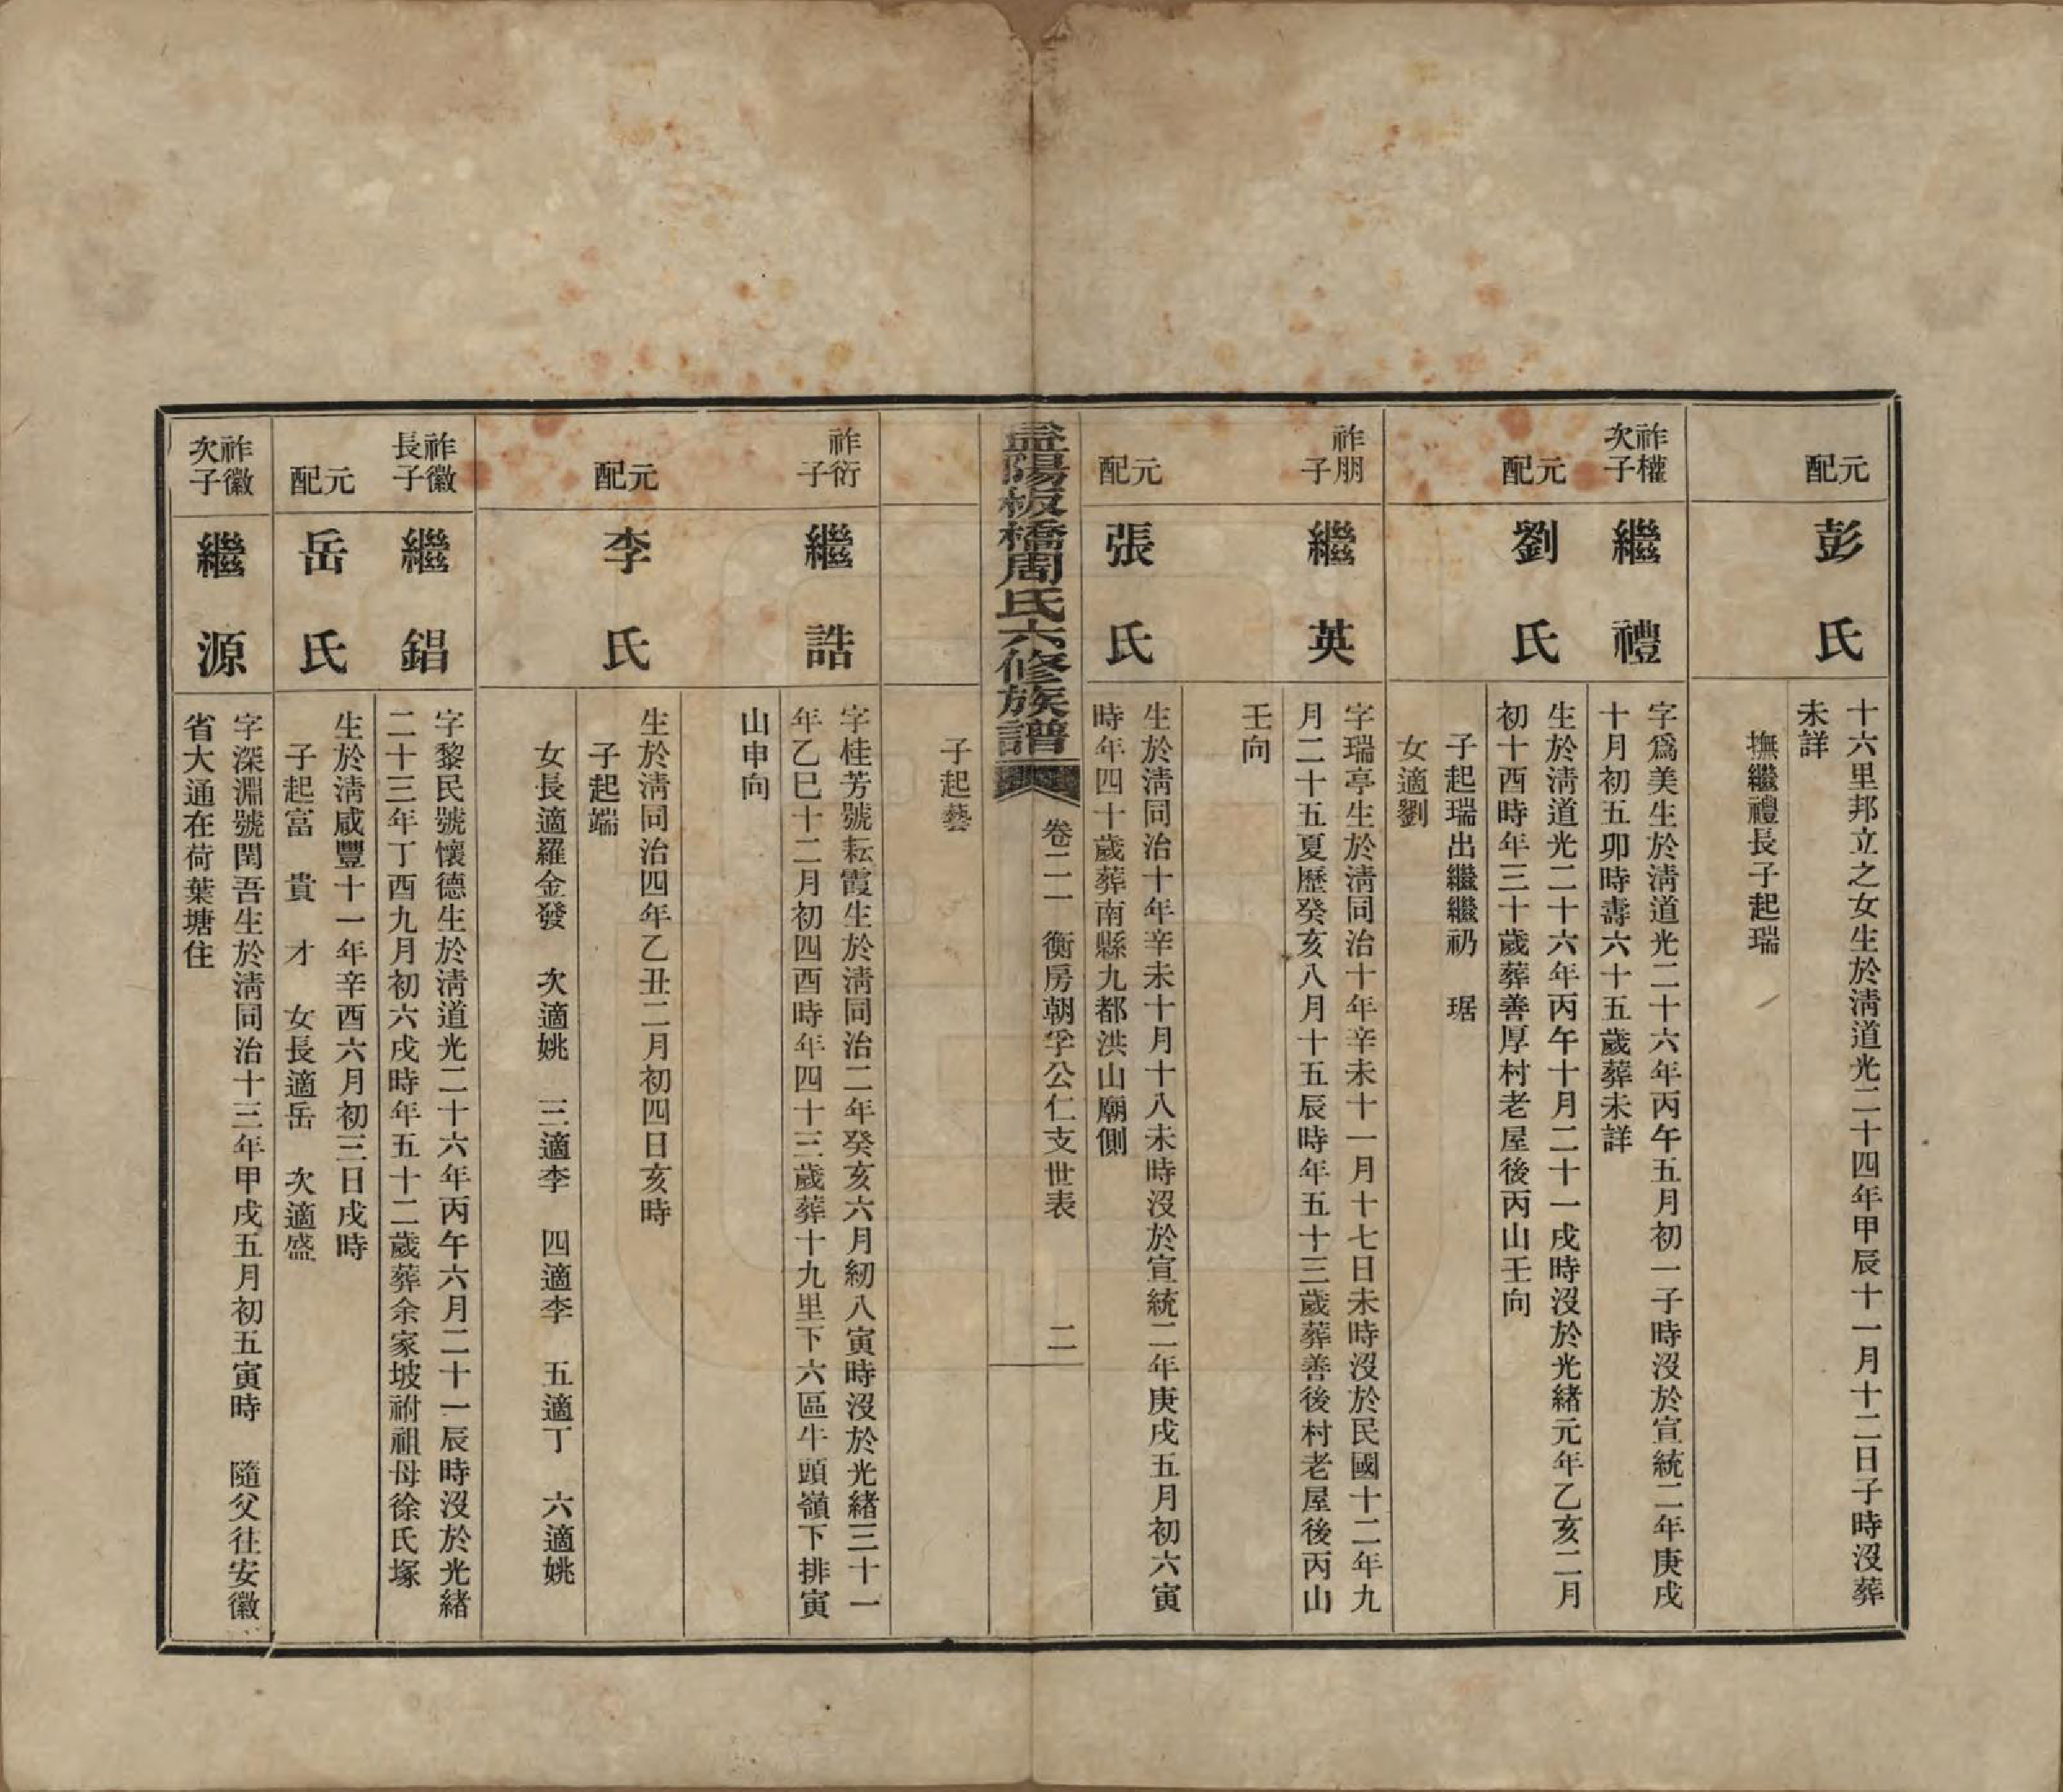 元配
彭氏
十六里邦立之女生於淸道光二十四年甲辰十一月十二日子時沒葬
未詳
撫繼禮長子起瑞
祚權
次子
繼禮
字爲美生於淸道光二十六年丙午五月初一子時沒於宣統二年庚戌
十月初五卯時壽六十五歲葬未詳
元配
劉氏
生於淸道光二十六年丙午十月二十一戌時沒於光緖元年乙亥二月
初十酉時年三十歲葬善厚村老屋後丙山壬向
子起瑞出繼繼礽　琚
女適劉
祚朋
子
繼英
字瑞亭生於淸同治十年辛未十一月十七日未時沒於民國十二年九
月二十五夏歷癸亥八月十五辰時年五十三歲葬善後村老屋後丙山
壬向
元配
張氏
生於淸同治十年辛未十月十八未時沒於宣統二年庚戌五月初六寅
時年四十歲葬南縣九都洪山廟側
益陽板橋周氏六修族譜
卷二一　衡房朝孚公仁支世表
二
子起藝
祚衍
子
繼誥
字桂芳號耘霞生於淸同治二年癸亥六月初八寅時沒於光緖三十一
年乙巳十二月初四酉時年四十三歲葬十九里下六區牛頭嶺下排寅
山申向
元配
李氏
生於淸同治四年乙丑二月初四日亥時
子起端
女長適羅金發　次適姚　三適李　四適李　五適丁　六適姚
祚徽
長子
繼錩
字黎民號懷德生於淸道光二十六年丙午六月二十一辰時沒於光緖
二十三年丁酉九月初六戌時年五十二歲葬余家坡祔祖母徐氏塚
元配
岳氏
生於淸咸豐十一年辛酉六月初三日戌時
子起富　貴　才　女長適岳　次適盛
祚徽
次子
繼源
字深淵號閏吾生於淸同治十三年甲戌五月初五寅時　隨父往安徽
省大通在荷葉塘住